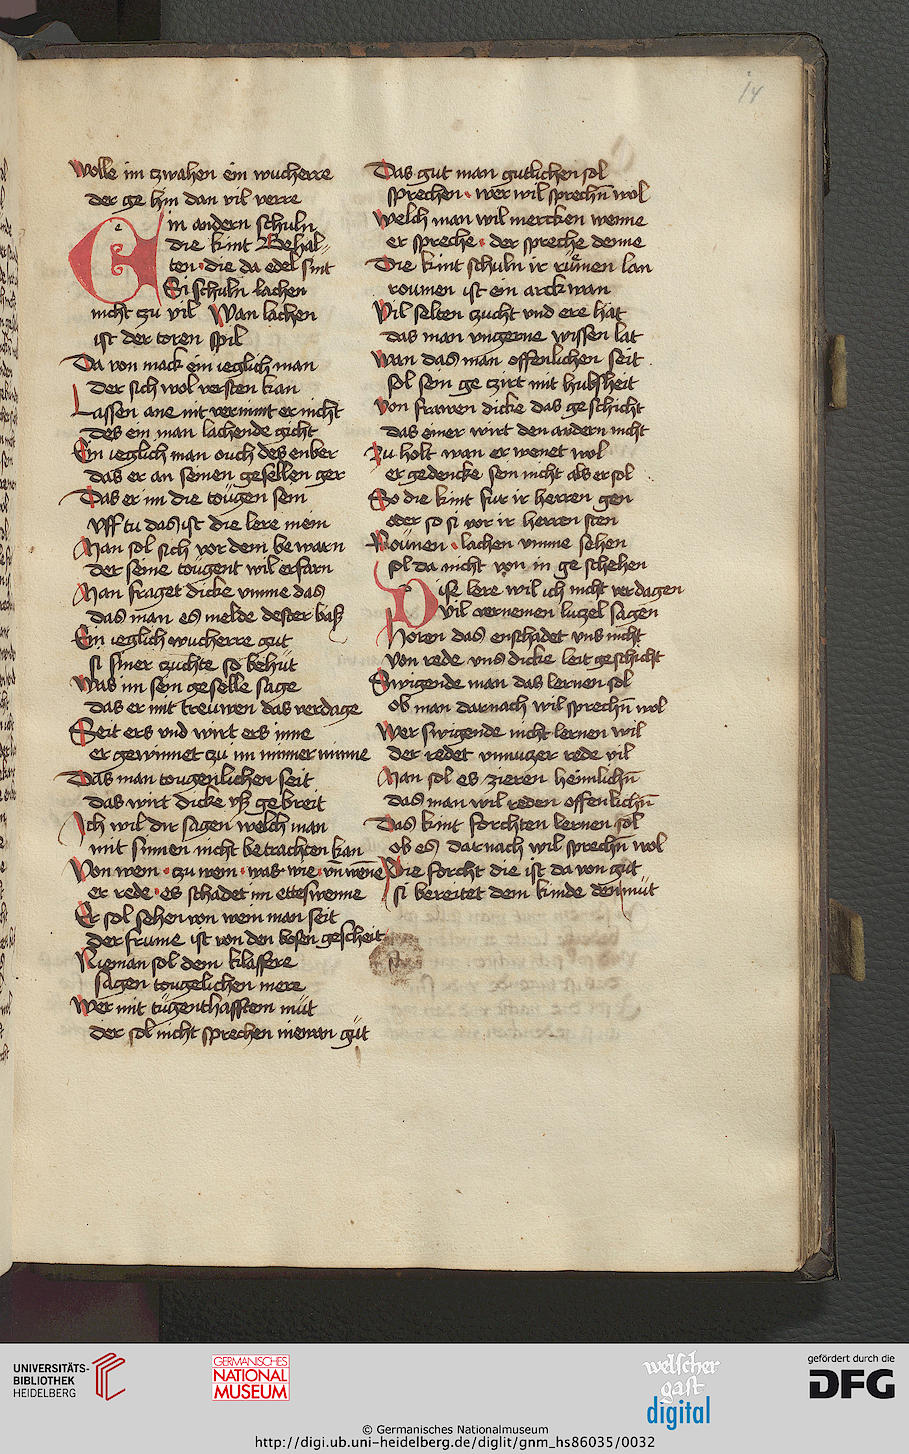 14
Wolle im zwahen ein wucherre
der ge him dan vil verre
Ein andern schuln
die kint Behal-
ten · die da edel sint
Si schuln lachen
nicht zu vil Wan lachen
ist der toren spil
Da von mack ein ieglich man
der sich wol versten kan
Lassen ane nit vernimt er nicht
des ein man lachende gicht
Ein ieglich man ouch des enber
das er an seinen gesellen ger
Das er im die tougen sein
Uff tu das ist die lere mein
Man sol sich vor dem be warn
der seine tougent wil erfarn
Man fraget dicke umme das
das man es melde dester baß
Ein ieglich wucherre gut
si siner zuchte so behüt
Was im sein geselle sage
das er mit treuwen das verdage
Seit ers und wirt ers inne
er gewinnet zu im nimer minne
Das man tougenlichen seit
das wirt dicke uß gebreit
Ich wil dir sagen welch man
mit sinnen nicht betrachten kan
Von wem · zu wem · was · wie · un wenne
er rede · es schadet im etteswenne
Er sol sehen von wem man seit
der frume ist von den bosen gescheit
Nieman sol dem klaffere
sagen tougelichen mere
Wer mit tügenthafftem müt
der sol nicht sprechen niewan güt
Das gut man gutlichen sol
sprechen · wer wil sprechn wol
Welch man wil mercken wenne
er spreche · der spreche denne
Die kint schuln ir rumen lan
roumen ist ein arckwan
Vil selten zucht und ere hat
das man ungerne wissen lat
Wan das man offenlichen seit
sol sein ge zirt mit hubscheit
Von frawen dicke das geschicht
das einer wirt den andern nicht
Zu holt wan er wenet wol
er gedencke sein nicht als er sol
So die kint fur ir herren gen
oder so si vor ir herren sten
Rounen · lachen umme sehen
sol da nicht von in ge schehen
Dise lere wil ich nicht verdagen
vil vernemen luzel sagen
Horen das enschadet uns nicht
von rede uns dicke leit geschicht
Swigende man das lernen sol
ob man darnach wil sprechn wol
Wer swigende nicht lernen wil
der redet unnuzer rede vil
Man sol es zieren heimlichn
das man wil reden offenlichn
Das kint forchten lernen sol
ob es darnach wil sprechn wol
Die forcht die ist da von gut
si bereitet dem kinde denmüt
UNIVERSITÄTS-
BIBLIOTHEK
HEIDELBERG
GERMANISCHES
NATIONAL
MUSEUM
welscher
gast
digital
gefördert durch die
DFG
© Germanisches Nationalmuseum
http://digi.ub.uni-heidelberg.de/diglit/gnm_hs86035/0032